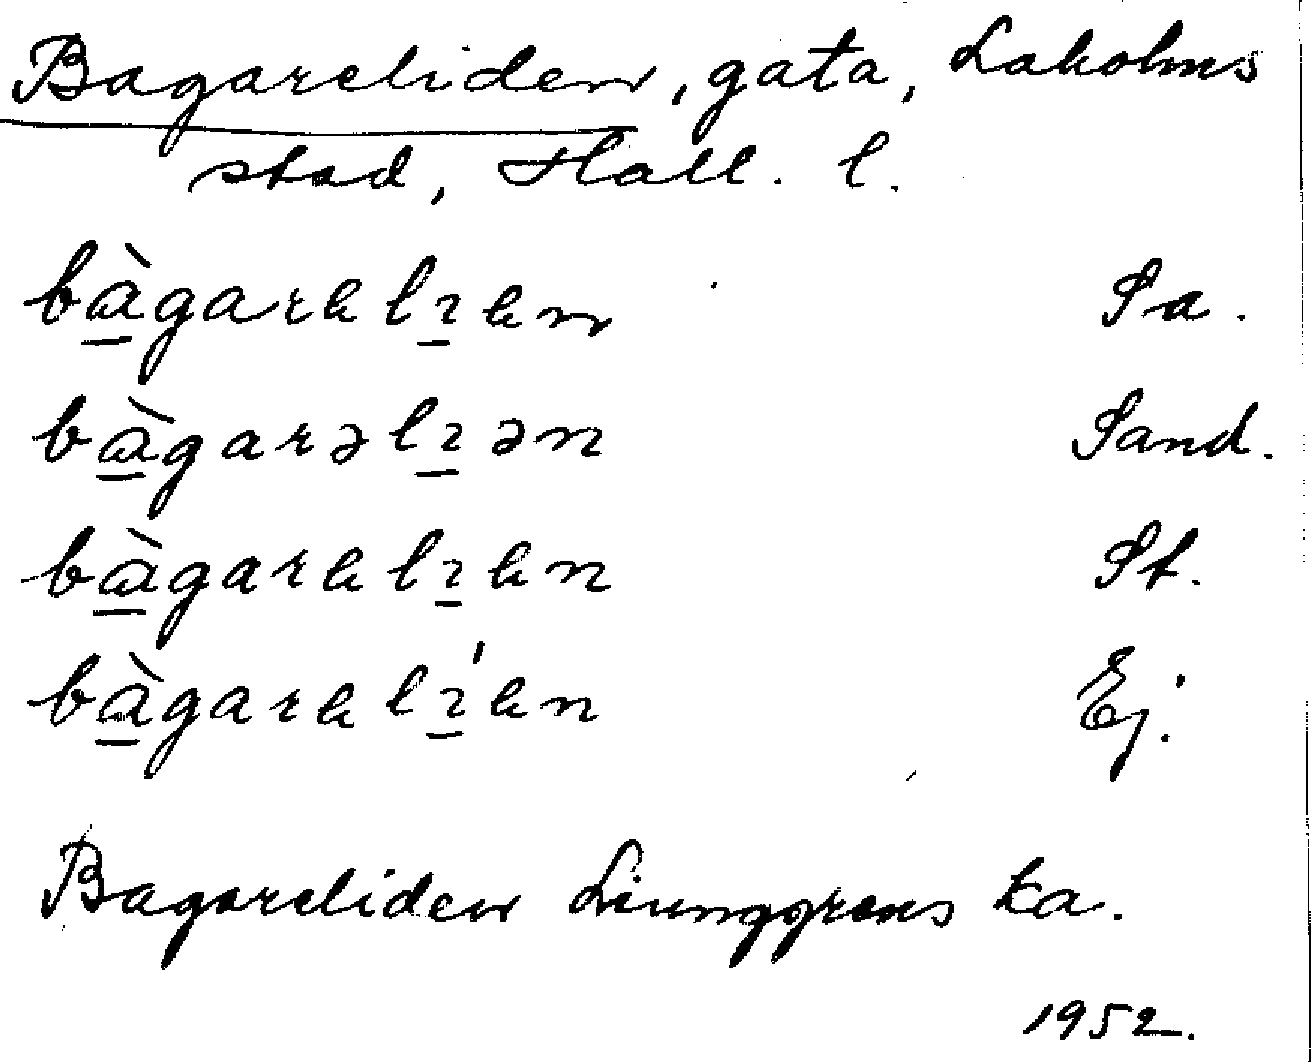 Bagareliden, gata, Laholms
stad, Hall. l.
bàgarelɩen Sa.
bàgarəlɩən Sand.
bàgarelɩen St.
bàgarelɩ́en Ej.
Bagareliden Ljunggrens ka.
1952.